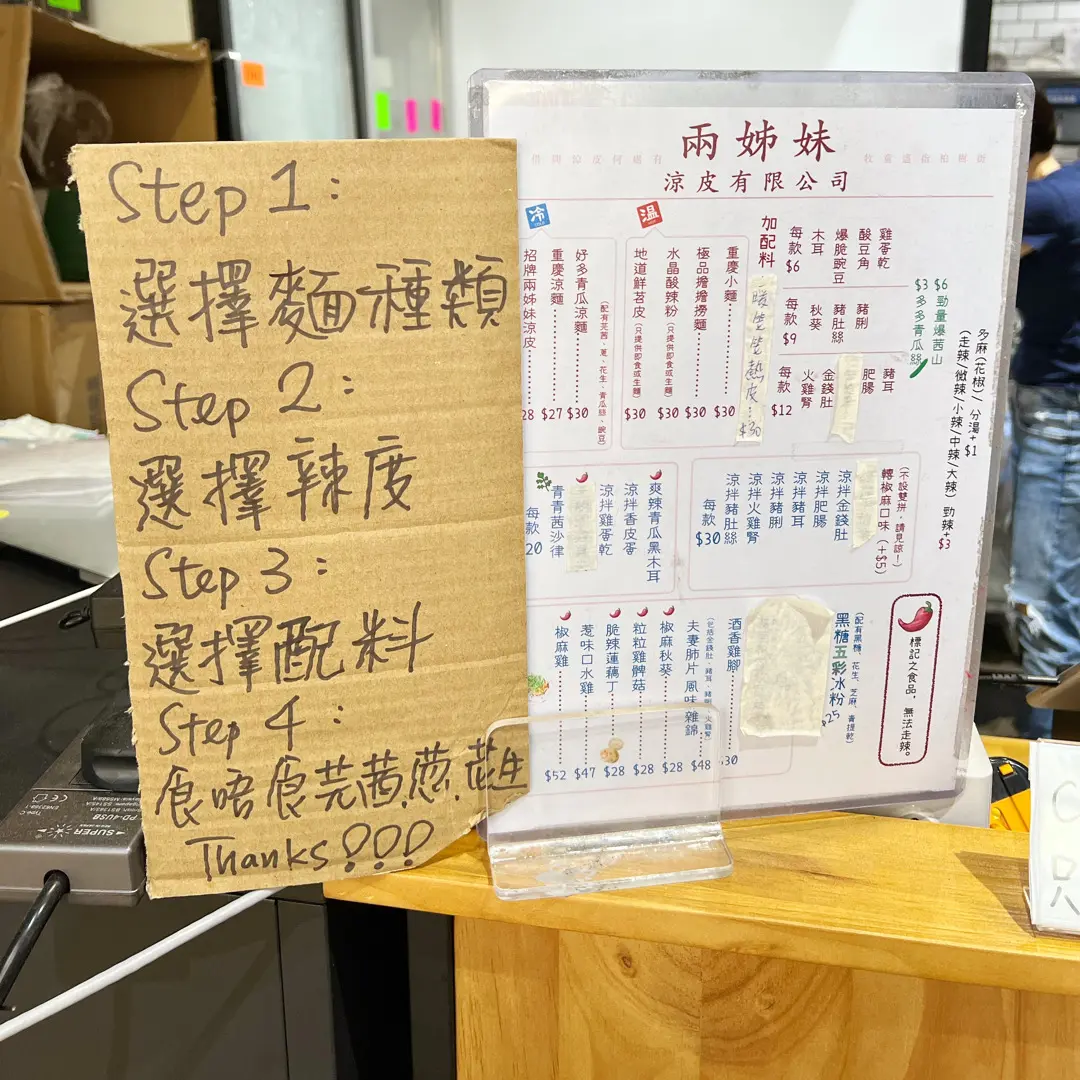 Step 1:
選擇麵種類
Step 2:
選擇辣度
Step 3:
選擇配料
Step 4:
食唔食芫茜.蔥.花生
Thanks!!!
兩姊妹
涼皮有限公司
冷
招牌兩姊妹涼皮 28
重慶涼麵 $27
好多青瓜涼麵 $30
(配有芫茜、蔥、花生、青瓜絲、豌豆)
温
地道鮮苕皮(只提供即食或生麵) $30
水晶酸辣粉(只提供即食或生麵) $30
極品擔擔撈麵 $30
重慶小麵 $30
$30
加配料
每款$6
木耳
爆脆豌豆
酸豆角
雞蛋乾
每款$9
秋葵
豬肚絲
豬脷
每款$12
火雞腎
金錢肚
肥腸
豬耳
$3 多多青瓜絲
$6 勁量爆茜山
多麻(花椒)/分湯+$1
(走辣/微辣/小辣/中辣/大辣) 勁辣+$3
每款20
青青茜沙律
涼拌雞蛋乾
涼拌香皮蛋
爽辣青瓜黑木耳
每款$30
涼拌豬肚絲
涼拌火雞腎
涼拌豬脷
涼拌豬耳
涼拌肥腸
涼拌金錢肚
轉椒麻口味(+$5)
(不設雙拼，請見諒！)
椒麻雞 $52
惹味口水雞 $47
脆辣蓮藕丁 $28
粒粒雞髀菇 $28
椒麻秋葵 $28
夫妻肺片風味雜錦 $48
酒香雞腳 $30
黑糖五彩冰粉 $25
標記之食品，無法走辣。
SUPER
PD-4USB
Type-C